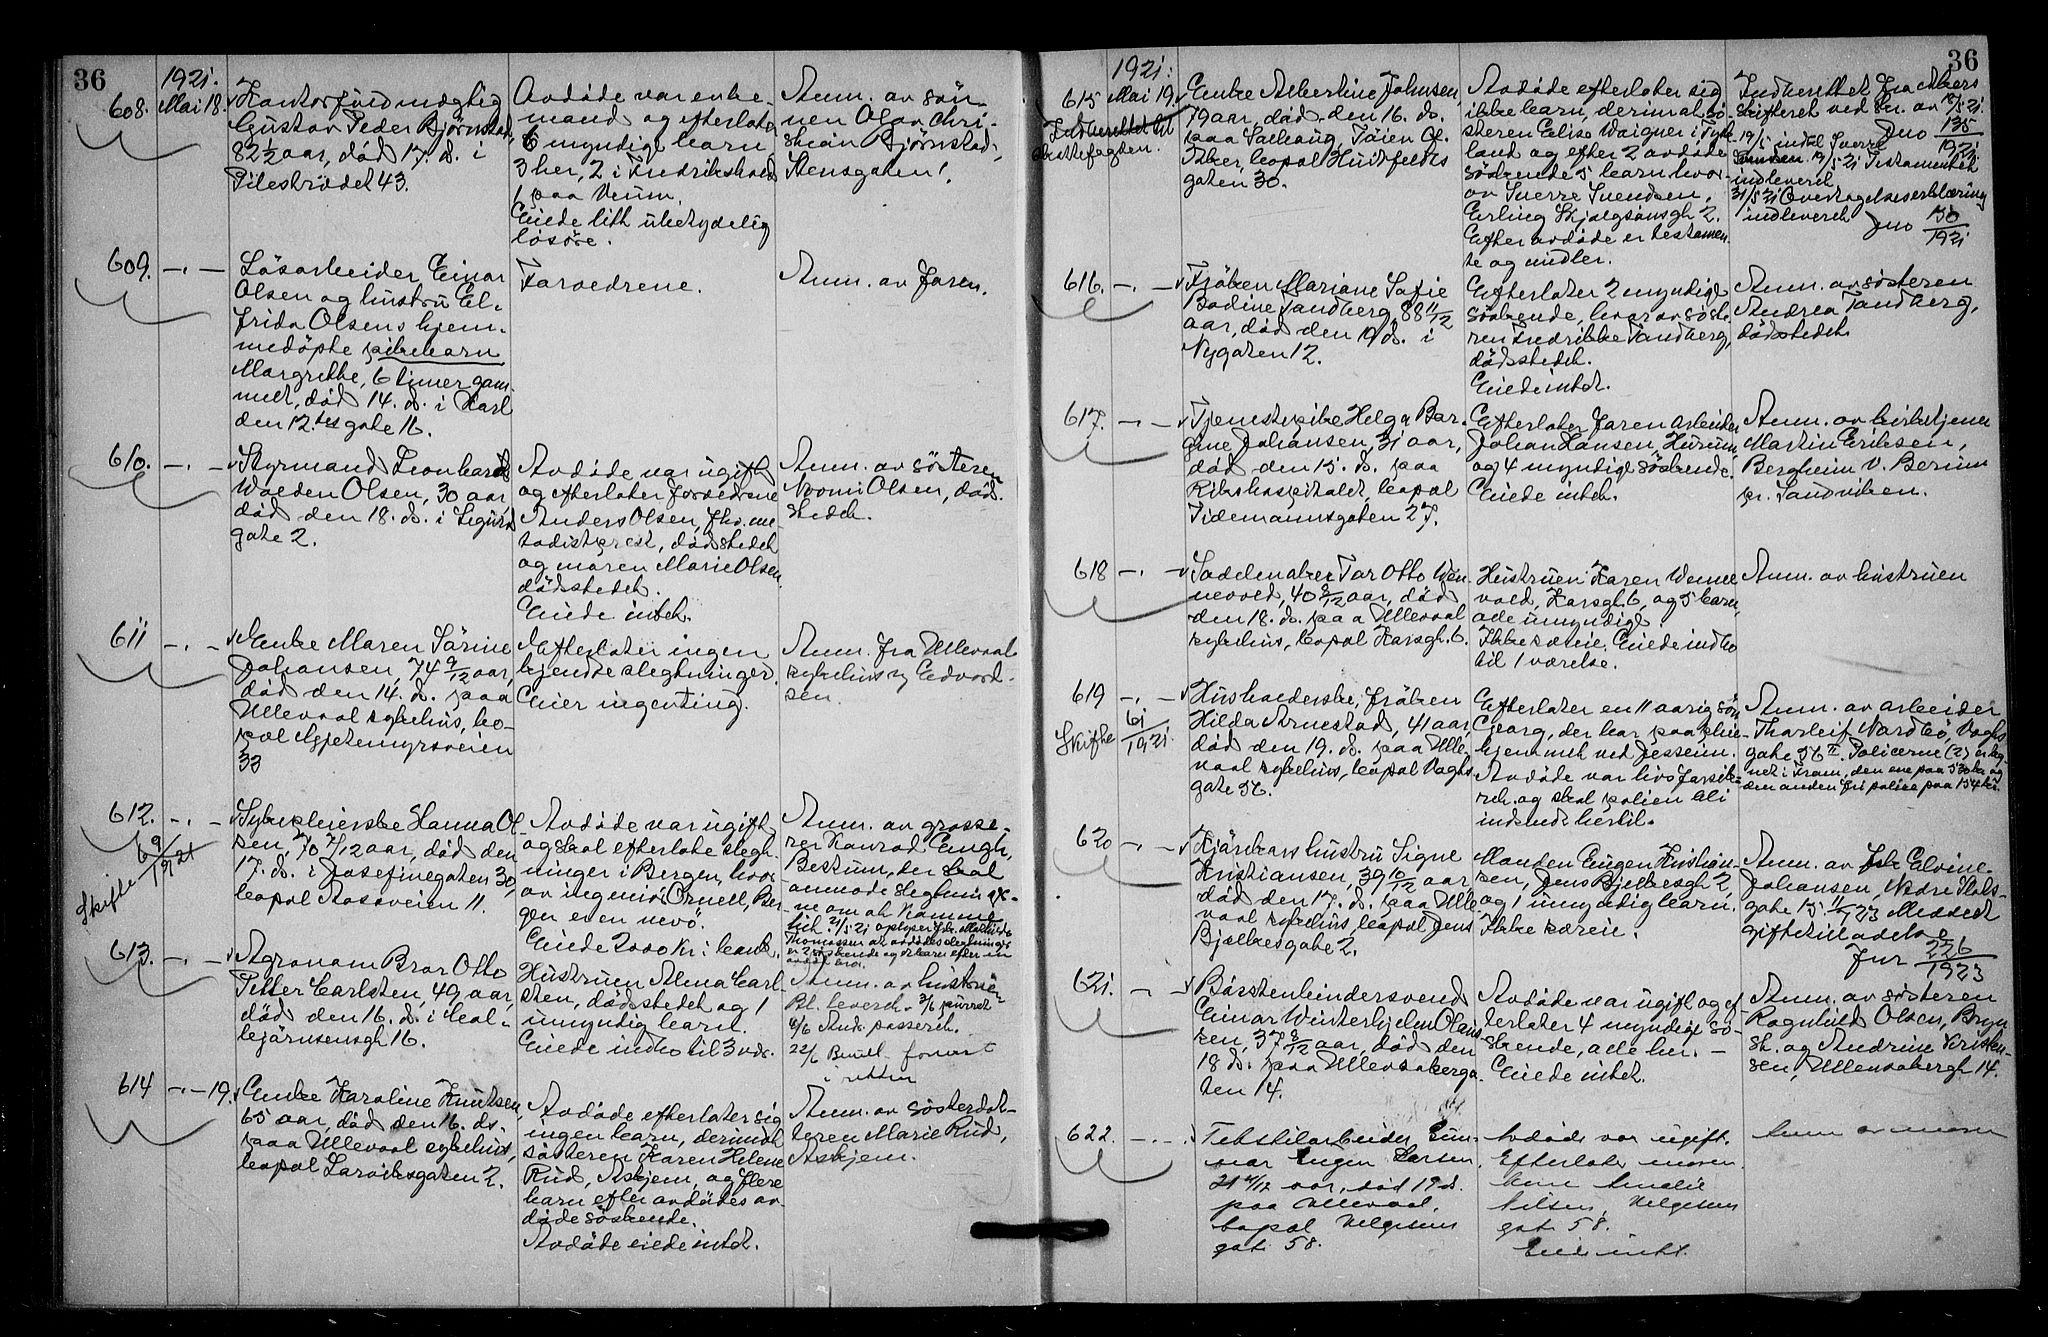 36
1921.
608. Mai 18.
Kontorfuldmægtig
Gustav Peder Bjørnstad,
82 1/2 aar, död 17. ds. i
Pilestrædet 43.
Avdöde var enke-
mand og efterlater
6 myndige barn
3 her, 2 i Fredrikshald
1 paa Verum.
Eiede litt ubetydelig
lösöre.
Anm. av søn
nen Olav Chri-
stian Bjørnstad,
Stensgaten 1.
609. -"-
Lösarbeider Einar
Olsen og hustru El-
frida Olsens hjem-
medöpte pikebarn
Margrethe, 6 timer gam-
melt, död 14. ds. i Karl
den 12.tes gate 16.
Forældrene.
Anm. av faren.
610. -"-
Styrmand Leonhard
Walden Olsen, 30 aar
död den 18. ds. i Sigurds
gate 2.
Avdöde var ugift
og efterlater forældrene
Anders Olsen, fhv. me-
todistprest, dödstedet
og moren Marie Olsen,
dödstedet.
Eiede intet.
Anm. av søsteren
Noomi Olsen, död-
stedet.
611 -"-
Enke Maren Sörine
Johansen, 74 9/12 aar,
död den 14. ds. paa
Ullevaal sykehus, bo-
pæl Gjetemyrsveien
33
Efterlater ingen
kjendte slegtninger.
Eier ingenting.
Anm. fra Ullevaal
sykehus v/ Edvard-
sen
612. -"-
Skifte 69/1921
Sykepleierske Hanna Ol-
sen, 70 7/12 aar, död den
17. ds. i Josefinegaten 30,
bopæl Aasaveien 11.
Avdöde var ugift
og skal efterlate slegt-
ninger i Bergen, hvor
av ingeniör Ornell, Ber-
gen er en nevö.
Eiede 2000 kr. i bank.
Anm. av grosse-
rer Konrad Eugh,
Bestum, der skal
anmode slegtninge-
ne om at komme
hit. 21/5 21 oplyser frk. Mathilde
Thomassen at avdödes slegtninger
er 2 söskende og barn efter en
avdöd bror.
613. -"-
Agronom Bror Otto
Petter Carlsten, 49 aar,
död den 16. ds. i Cal-
mejernsensgt 16.
Hustruen Alma Carl-
sten, dödstedet og 1
umyndig barn.
Eiede indbo til 3 vær.
Anm. av hustruen
Bl. levert. 3/6 purret
4/6 And. passert.
22/6 Bevill. forevist
i retten
614 -"- 19.
Enke Karoline Knutsen,
65 aar, död den 16. ds.
paa Ullevaal sykehus,
bopæl Larviksgaten 2.
Avdöde efterlater sig
ingen barn, derimot
søsteren Karen Helene
Rud, Askjem, og flere
barn efter avdödes av-
döde söskende.
Avdöde eiede intet.
Anm. av søsterdat-
teren Marie Rud,
Askjem.
36
1921.
615 Mai 19.
Indberettet til
skiftefogden.
Enke Albertine Johnsen,
79 aar, död den 16. ds.
paa
bopæl Huitfeldts
gaten 30.
Avdöde efterlater sig
ikke barn, derimot sö-
steren Elise Waigner i Tysk-
land og efter 2 avdöde
söskende 5 barn hvor-
av Sverre Svendsen,
Erling Skjalgsönsgt 2.
Efter avdöde er testamen-
te og midler.
Indberettet fra Akers
skifteret ved skr. av 18/5 21
Jno 135/1921
19/5 indk. Sverre
19/5 21 Testamentet
indlevert
31/5 21 Overtagelseserklæring
indlevert
Jno 150/1921
616. -"-
Fröken Mariane Sofie
Bodine Tandberg, 88 11/12
aar, död den 19 ds. i
Nygaten 12.
Efterlater 2 myndige
söskende, hvorav søste-
ren Fredrikke Tandberg,
dödstedet.
Eiede intet.
Anm. av søsteren
Andrea Tandberg,
dödstedet.
617. -"-
Tjenestepike Helga Bar-
gine Johansen, 31 aar,
död den 15. ds. paa
Rikshospitalet, bopæl
Tidemannsgaten 27.
Efterlater faren arbeider
Johan Hansen, Hurum,
og 4 myndige söskende.
Eiede intet.
Anm. av kirketjener
Martin Eriksen,
Bergheim V. Bærum
pr. Sandviken.
618 -"-
Sadelmaker Tor Otto Wen-
nevold, 40 8/12 aar, död
den 18. ds. paa Ullevaal
sykehus, bopæl Korsgt. 6.
Hustruen Karen Wenne
vold, Korsgt. 6, og 5 barn,
alle umyndige.
Ikke særeie. Eiede indbo
til 1 værelse.
Anm. av hustruen
619 -"-
Skifte 61/1921.
Husholderske, fröken
Hilda Arnestad, 41 aar
död den 19. ds. paa Ulle-
vaal sykehus, bopæl Vogts
gate 56.
Efterlater en 11 aarig søn
Georg, der bor paa pleie-
hjemmet ved Jessheim.
Avdöde var livsforsik-
ret. og skal polisen bli
indsendt hertil.
Anm. av arbeider
Tharleif Nordbö, Vogts
gate 56 II. Policerne (2) er teg-
net i Fram, den ene paa 530 kr. og
den anden fri police paa 154 kr.
620 -"-
Kjörekars hustru Signe
Kristiansen, 39 10/12 aar
död den 17. ds. paa Ulle
vaal sykehus, bopæl Jens
Bjelkesgate 2.
Manden Eugen Kristian-
sen, Jens Bjelkesgt 2,
og 1 umyndig barn.
Ikke særeie.
Anm. av frk Elvine
Johansen, Nedre Slots-
gate 15. 11/1 23 Meddelt
giftetilladelse
Jnr 226/1923
621. -
Börstenbindersvend
Einar Winterhjelm Olaus
sen, 37 8/12 aar, död den
18 ds. paa Ullevaalsga-
ten 14.
Avdöde var ugift og ef-
terlater 4 myndige sö-
skende, alle her. -
Eiede intet.
Anm. av søsteren
Ragnhild Olsen, Bryn
st. og Andrine Kristen-
sen, Ullevaalsgt 14.
622. -"-
Tekstilarbeider Gun-
nar Eugen Larsen
21 4/12 aar, död 19 ds.
paa Ullevaal,
bopæl Helgesens
gate 58.
Avdöde var ugift.
Efterlater moren
Amalie
Nilsen, Helgesens
gate 58.
Eiede intet.
Anm av moren